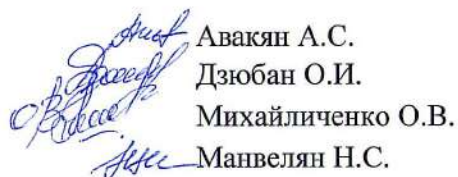 Авакян А.С.
Дзюбан О.И.
Михайличенко О.В.
Манвелян Н.С.